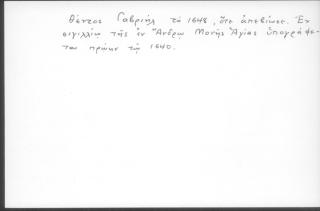 θέντος Γαβριήλ τῷ 1648, ὅτε ἀπεβίωσε. Ἐν
σιγιλλίῳ τῆς ἐν Ἄνδρῳ Μονῆς Ἁγίας ὑπογράφε-
ται πρώην τῷ 1640.